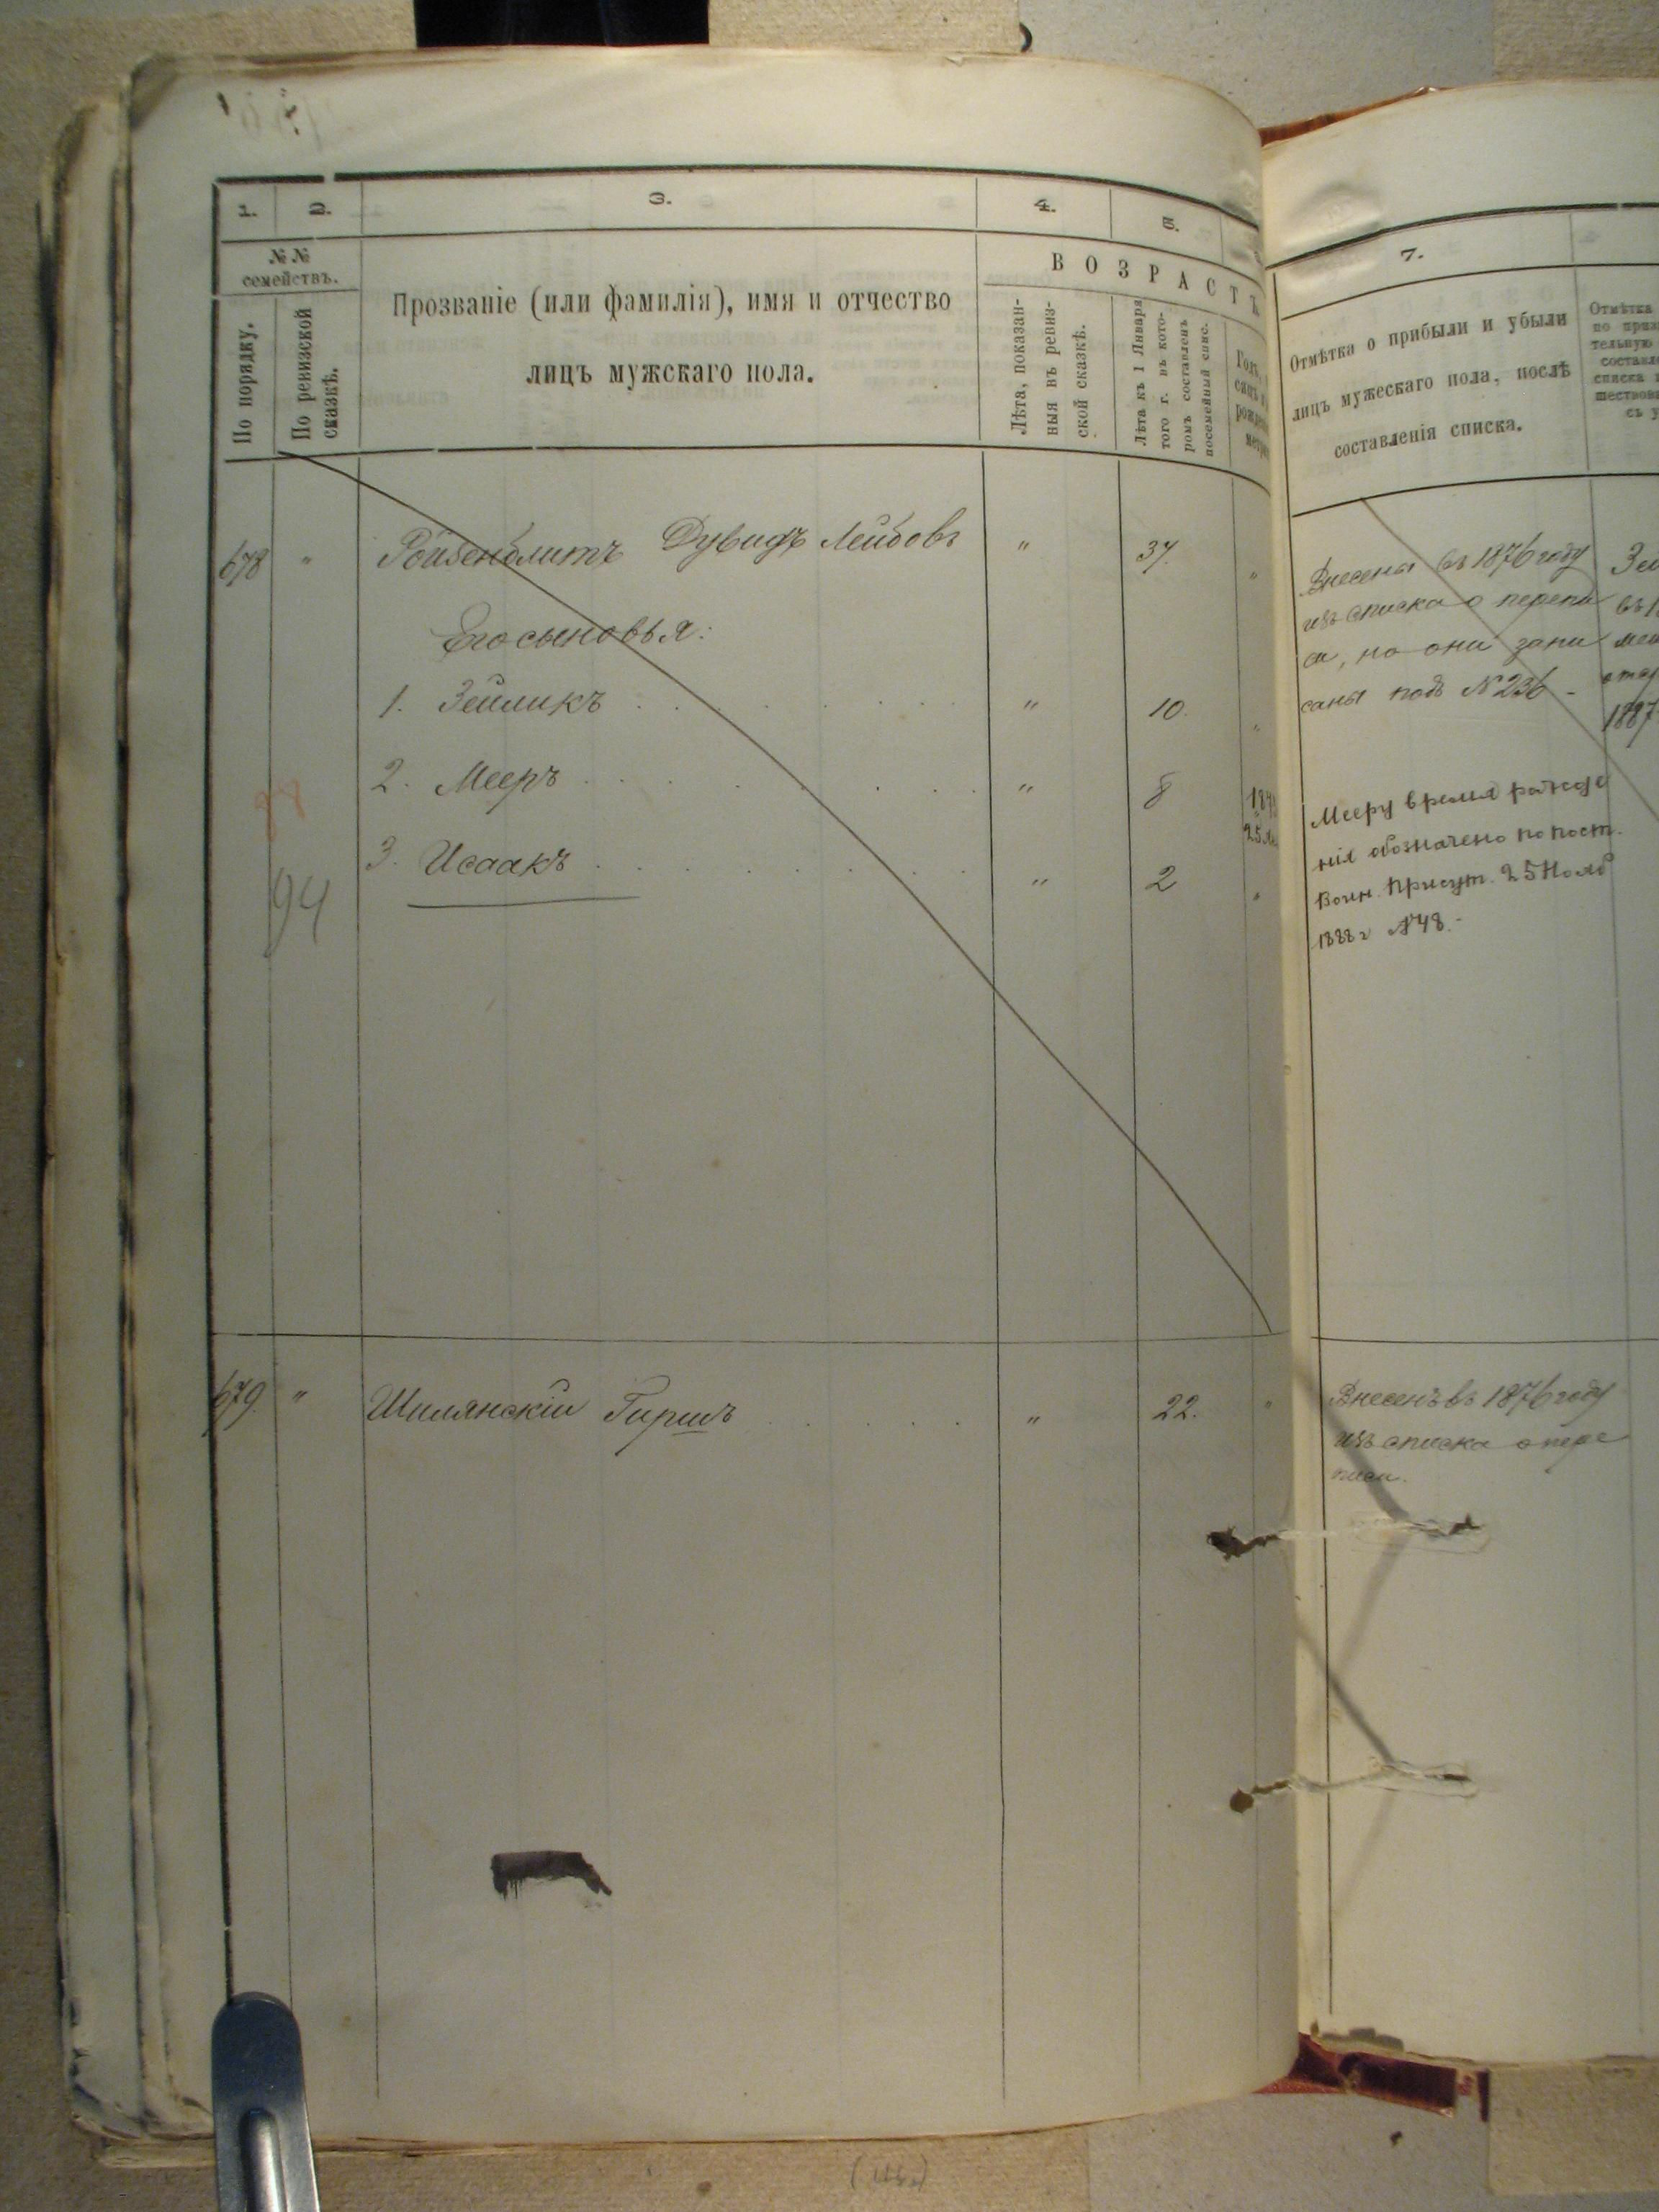 1.
2.
3.
4.
5.
№ №
семействъ.
По порядку.
По ревизской
сказкѣ.
Прозваніе (или фамилія), имя и отчество
лицъ мужскаго пола.
ВОЗРАСТЪ
Лѣта, показан-
ныя въ ревиз-
ской сказкѣ.
Лѣта къ 1 Января
того г. въ кото-
ромъ составленъ
посемейный спис.
7.
Отмѣтка о прибыли и убыли
лицъ мужескаго пола, послѣ
составленія списка.
Отмѣтка
по
тельную
составл
списка
шествов
съ у
678 " Ройзенблитъ Дувидъ Лейбовъ " 37. "
Его сыновья:
1. Зейликъ . . . . . . . " 10. "
2. Мееръ . . . . . . . " 8
25
3. Исаакъ . . . . . . . " 2 "
94
Внесены въ 1876 году
изъ списка о перепи
си, но они запи
саны подъ № 236 -
1887
Мееру время рожде
нія обозначено по пост.
Воин. Присут. 25 Нояб
1888 г №48.-
679 " Шилянскій Гиршъ . . . . . " 22. "
Внесенъ въ 1876 году
изъ списка о пере
писи.